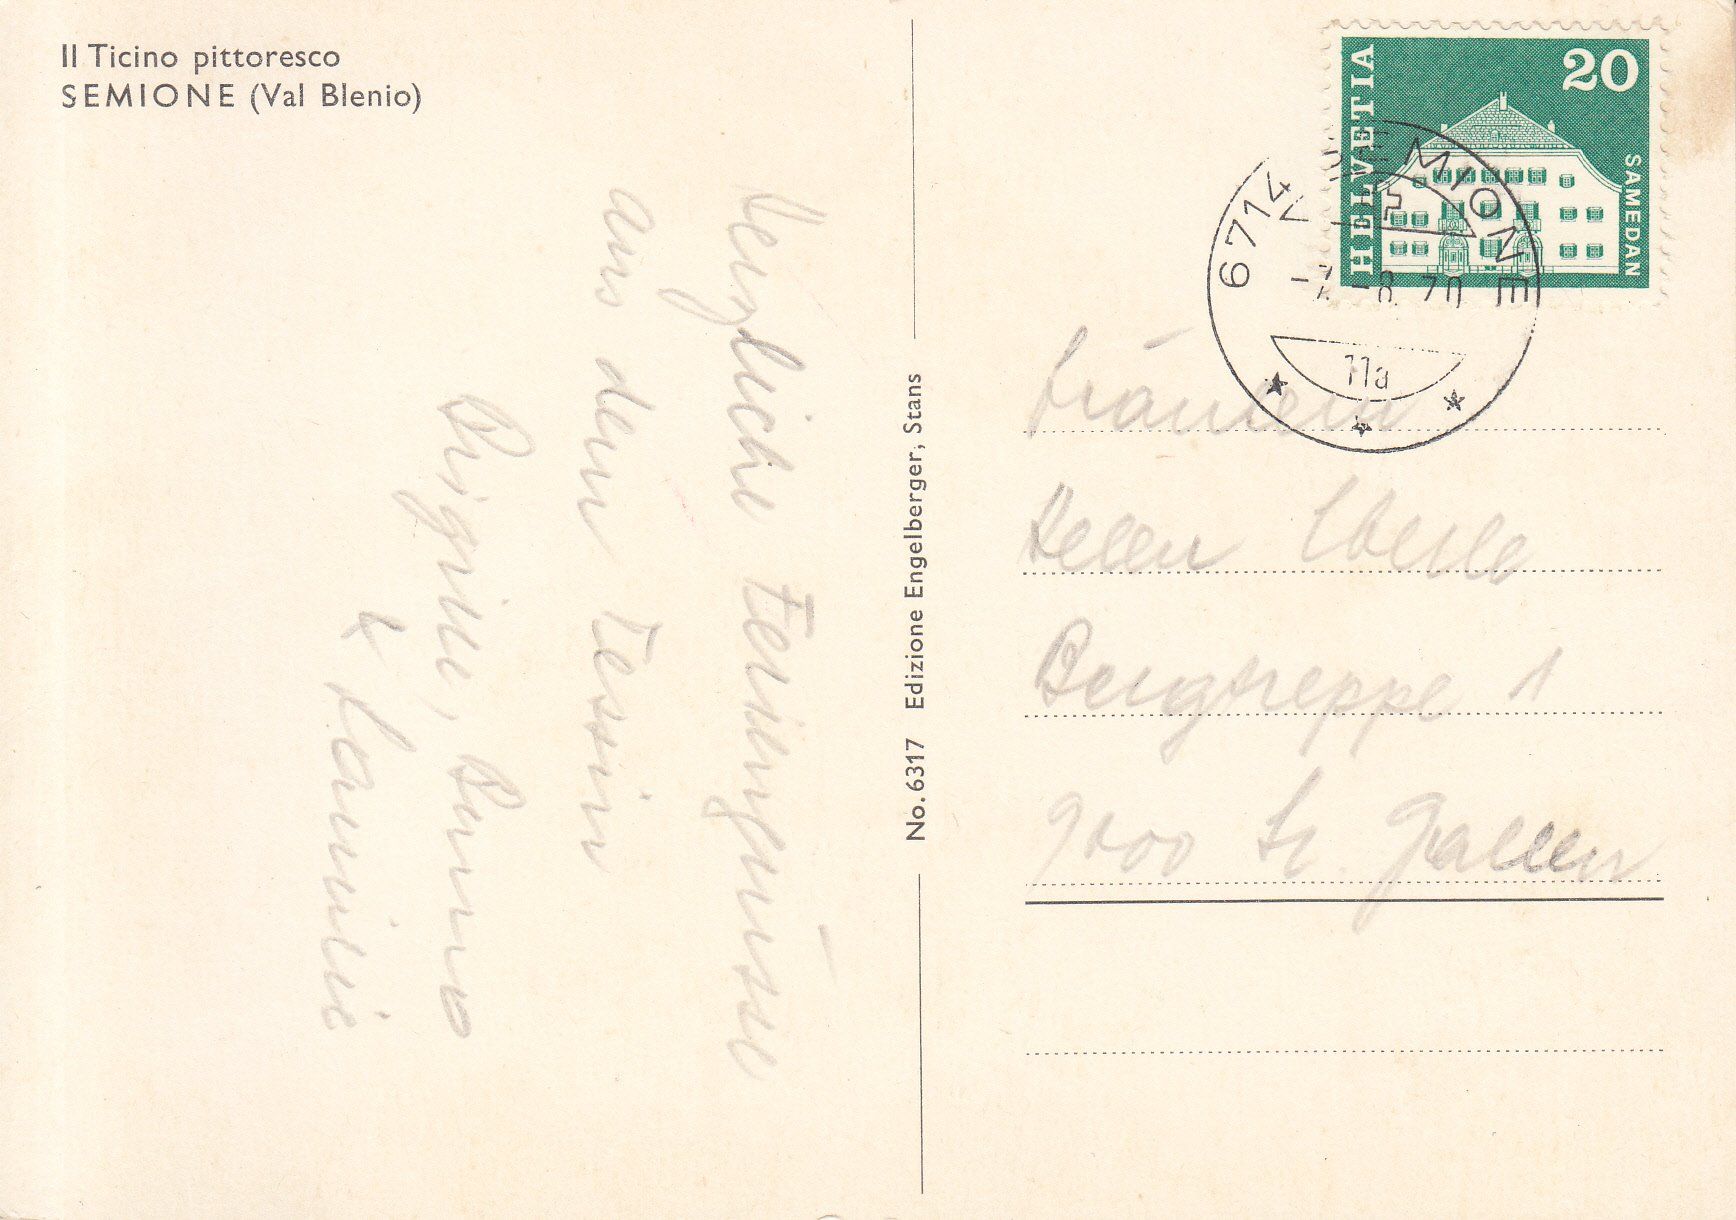 Il Ticino pittoresco
SEMIONE (Val Blenio)
Herzliche Feriengrüsse
aus dem Tessin
Brigitte, Benno
& Familie
No. 6317 Edizione Engelberger, Stans
HELVETIA
20
SAMEDAN
6714 SEMIONE
-7.-8.70
11a
Fräulein
Eberle
Bergtreppe 1
9000 St. Gallen